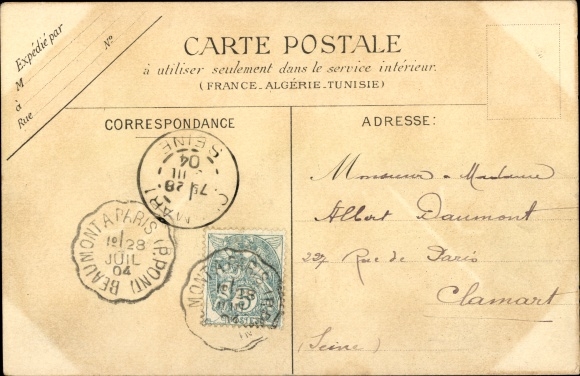 Expédié par
N°
M
à
Rue
CARTE POSTALE
à utiliser seulement dans le service intérieur.
(FRANCE_ALGÉRIE_TUNISIE)
CORRESPONDANCE
ADRESSE:
SEINE
7 28
04
BEAUMONT A PARIS (B.PONT)
1° 28
JUIL
04
5
Monsieur & Madame
Albert Daumont
227 Rue de Paris
Clamart
(Seine)